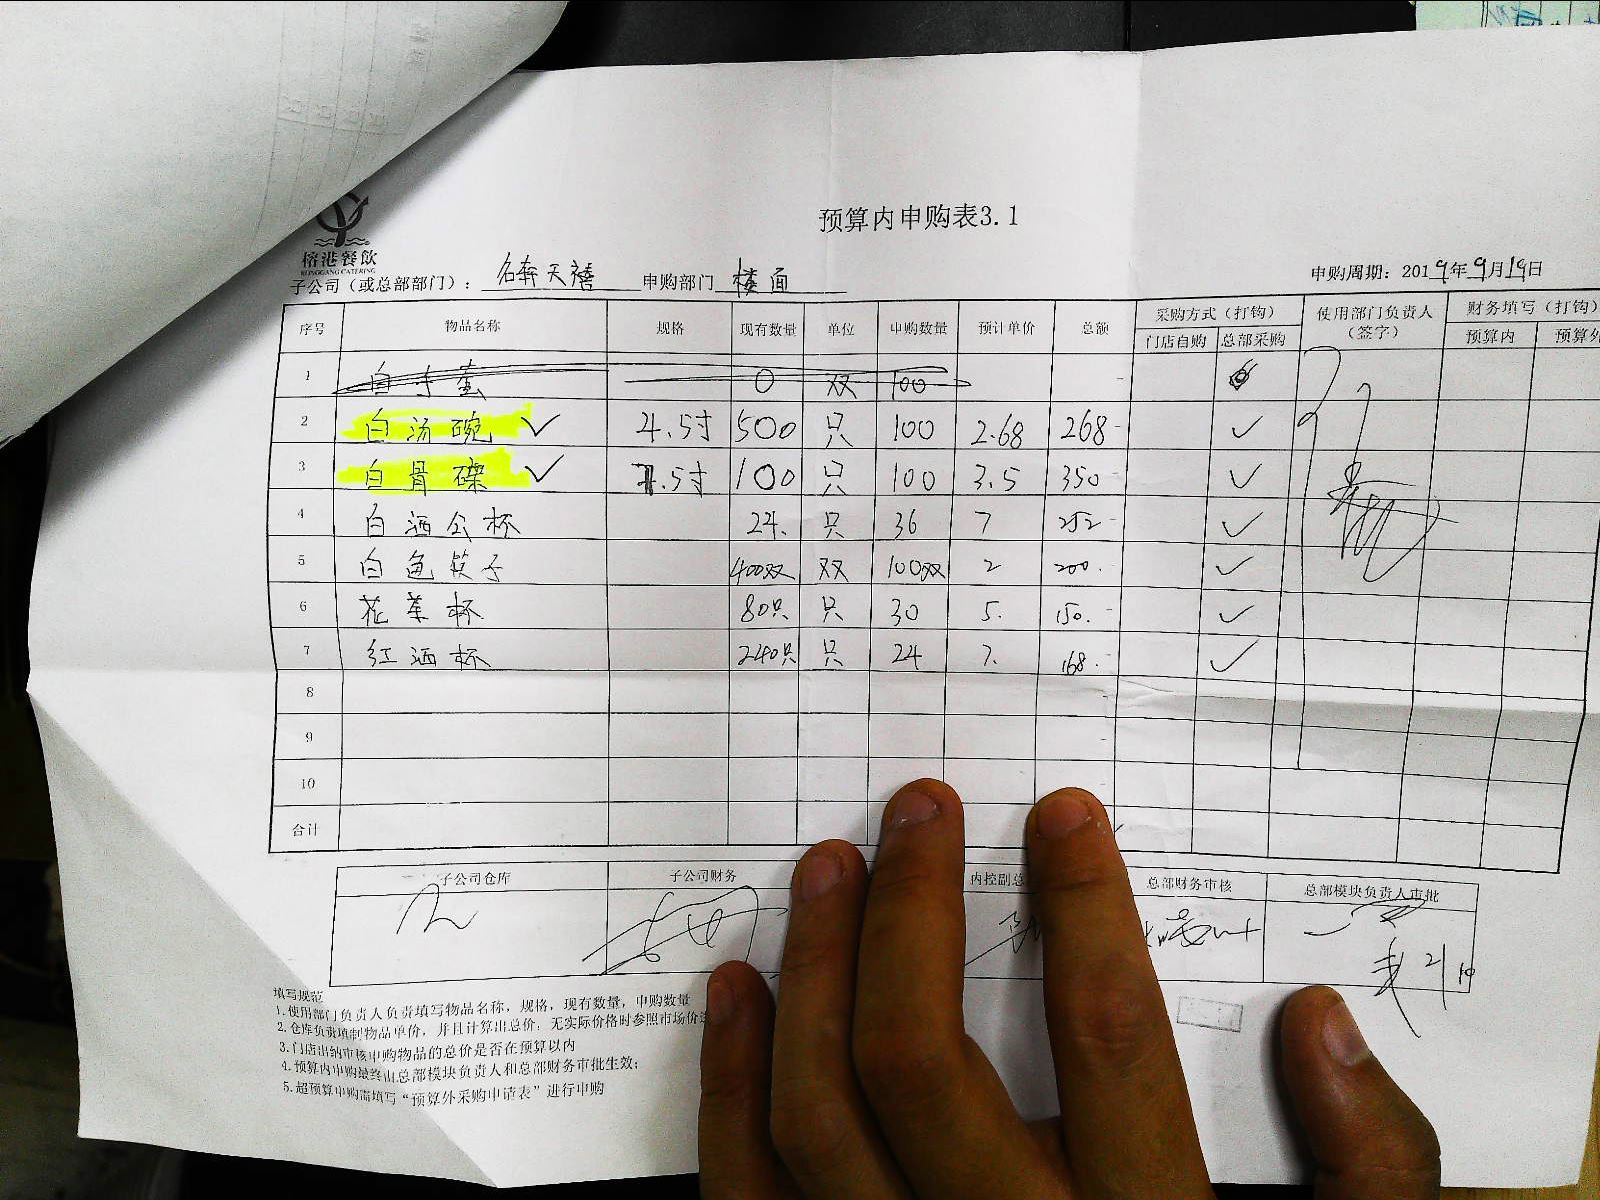 预算内申购表3.1
榕港餐饮
RONGGANG CATERING
子公司（或总部部门）：名奔天禧 申购部门 楼面 申购周期：2019年9月19日
序号 物品名称 规格 现有数量 单位 申购数量 预计单价 总额 采购方式（打钩） 使用部门负责人（签字） 财务填写（打钩）
门店自购 总部采购 预算内 预算外
1 白手套 0 双 100
2 白汤碗 ✓ 4.5寸 500 只 100 2.68 268 ✓
3 白骨碟 ✓ 7.5寸 100 只 100 3.5 350 ✓
4 白酒公杯 24. 只 36 7 252 ✓
5 白色筷子 400双 双 100双 2 200. ✓
6 花茶杯 80只 只 30 5. 150. ✓
7 红酒杯 240只 只 24 7. 168. ✓
8
9
10
合计
子公司仓库 子公司财务 内控副总 总部财务审核 总部模块负责人审批
填写规范
1.使用部门负责人负责填写物品名称，规格，现有数量，申购数量
2.仓库负责填制物品单价，并且计算出总价，无实际价格时参照市场价
3.门店出纳审核申购物品的总价是否在预算以内
4.预算内申购最终由总部模块负责人和总部财务审批生效；
5.超预算申购需填写“预算外采购申请表”进行申购